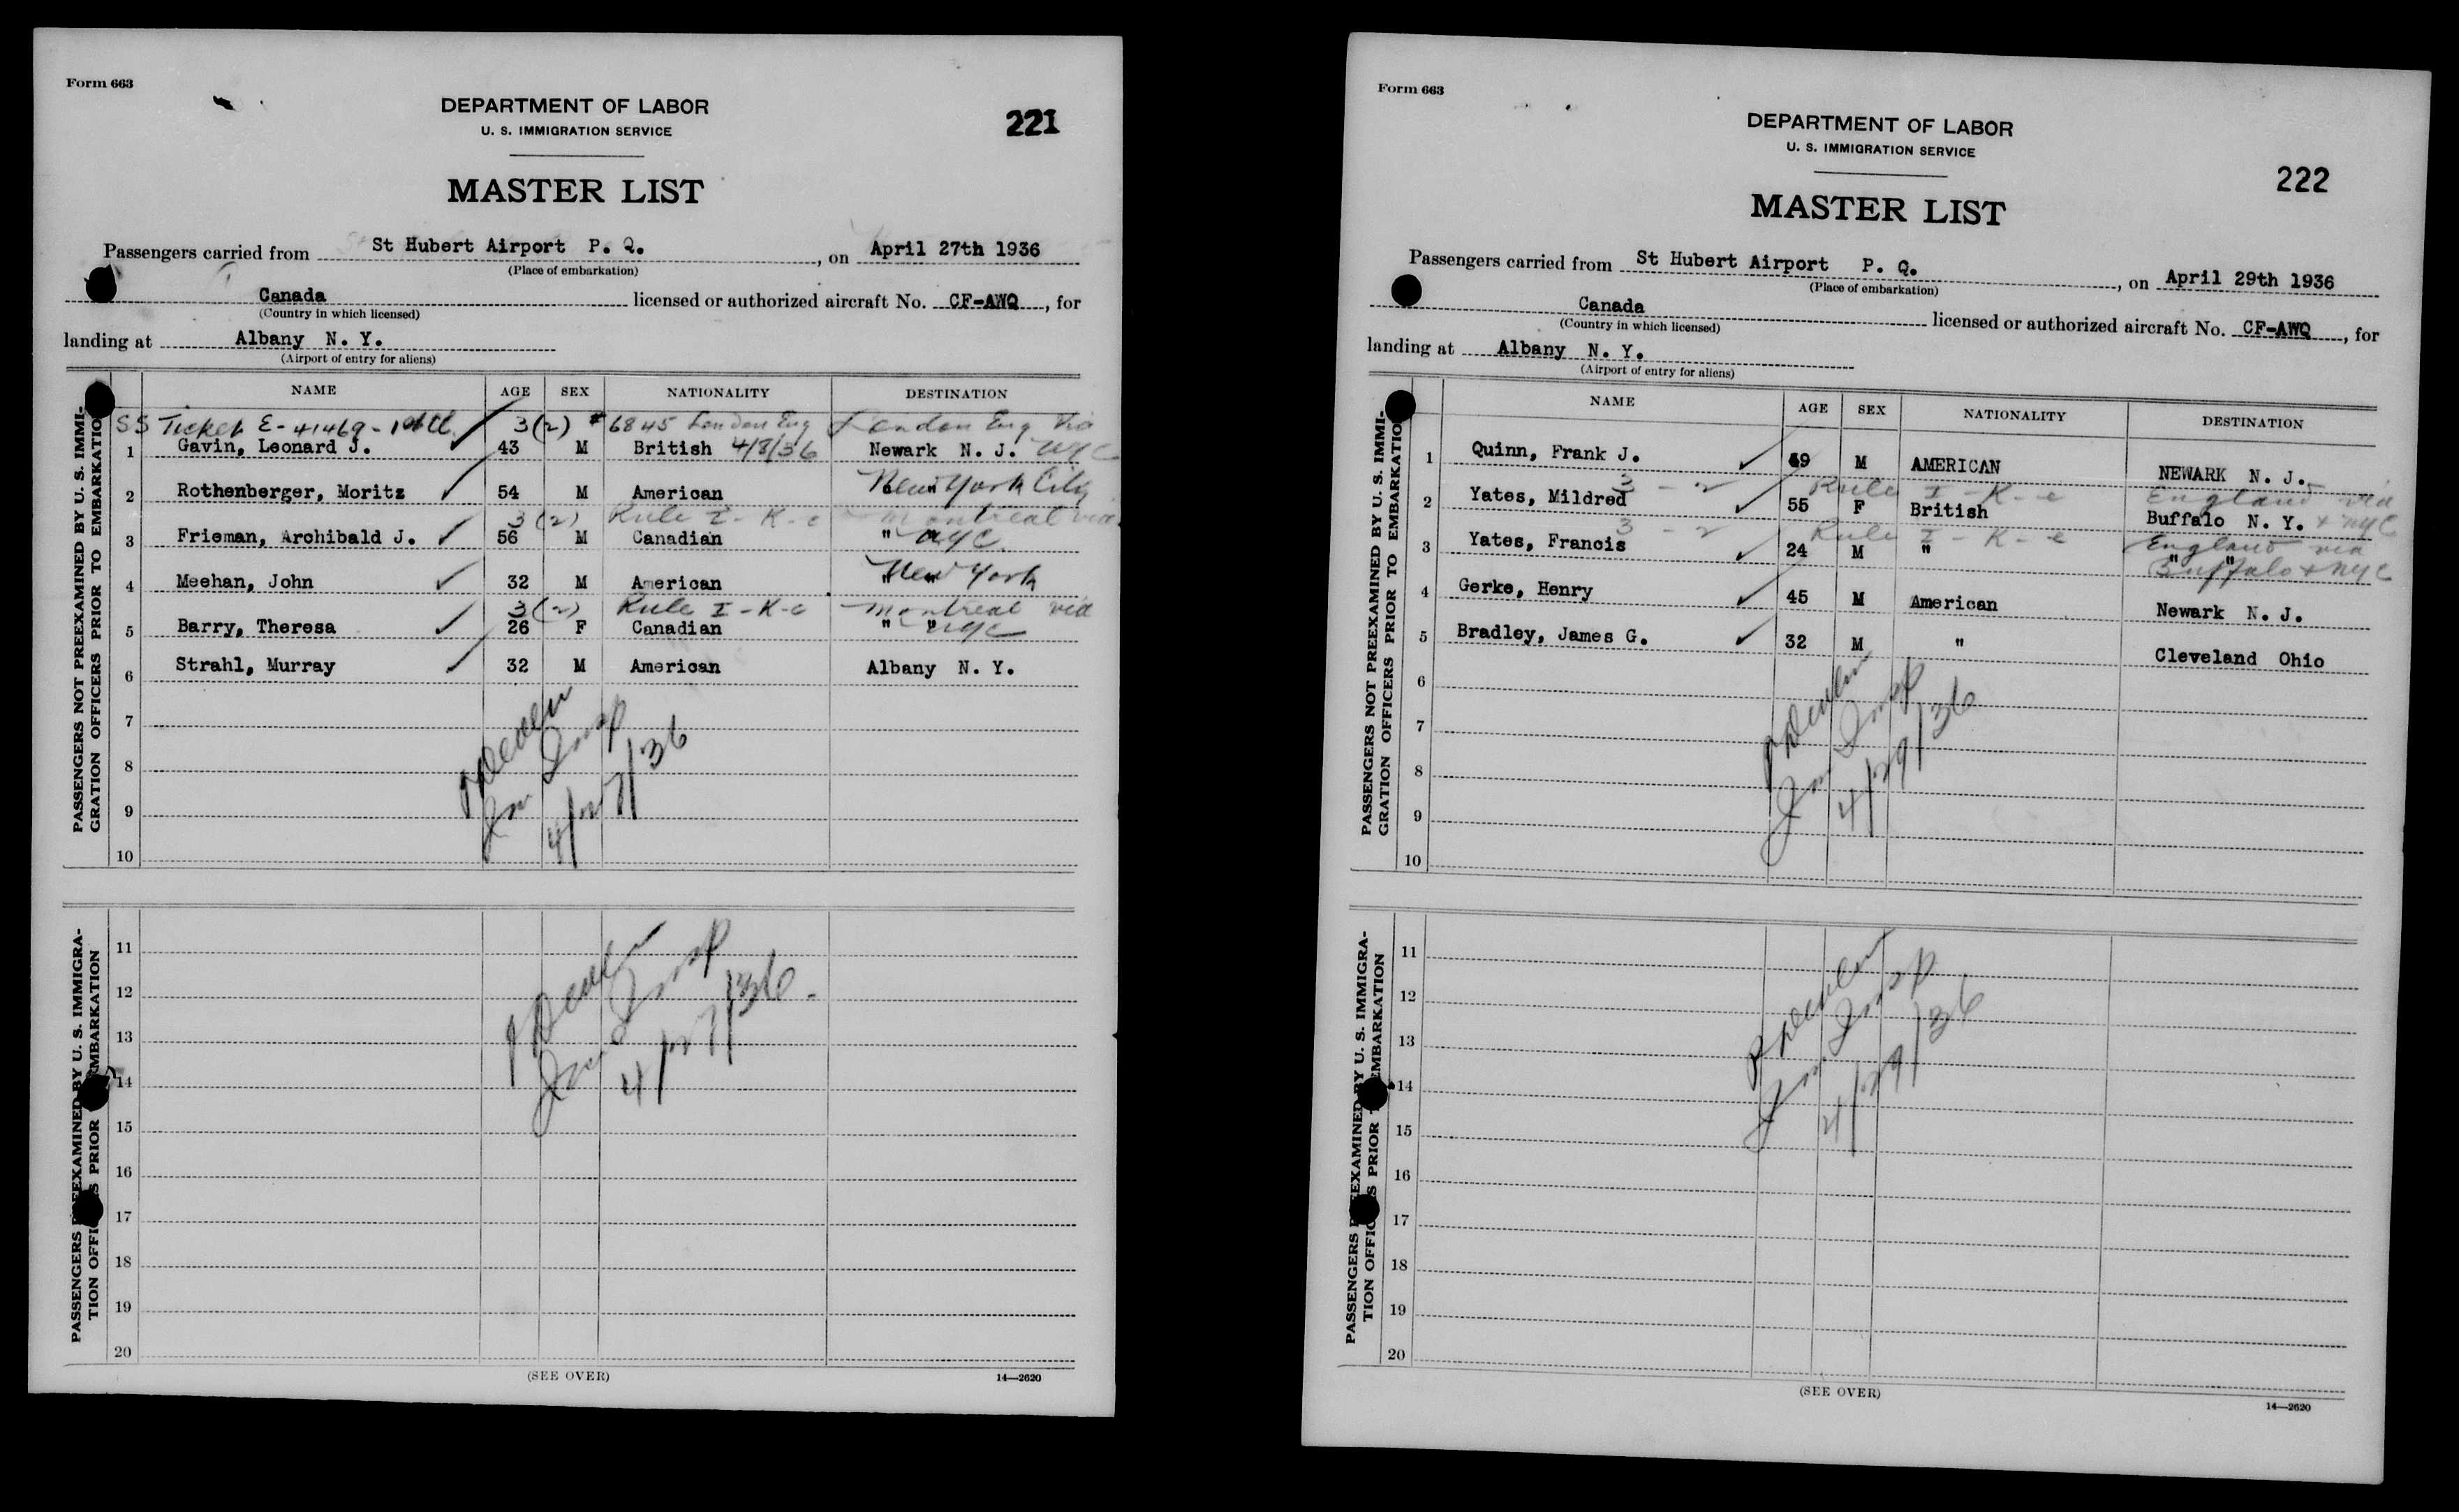 Form 663
DEPARTMENT OF LABOR
U. S. IMMIGRATION SERVICE
221
MASTER LIST
Passengers carried from St Hubert Airport P. Q., on April 27th 1936
(Place of embarkation)
Canada licensed or authorized aircraft No. CF-AWQ, for
(Country in which licensed)
landing at Albany N. Y.
(Airport of entry for aliens)
PASSENGERS NOT PREEXAMINED BY U. S. IMMI-
GRATION OFFICERS PRIOR TO EMBARKATION
NAME AGE SEX NATIONALITY DESTINATION
SS Ticket E-41469- 3(2) #6845 London Eng London Eng via
1 Gavin, Leonard J. 43 M British 4/8/36 Newark N. J. NYC
New York City
2 Rothenberger, Moritz 54 M American "
3(2) Rule I-K-c Montreal via
3 Frieman, Archibald J. 56 M Canadian " NYC
New York
4 Meehan, John 32 M American " "
3(2) Rule I-K-c Montreal via
5 Barry, Theresa 26 F Canadian " " NYC
6 Strahl, Murray 32 M American Albany N. Y.
7
8
9
10
Imm Insp
4/27/36
PASSENGERS PREEXAMINED BY U. S. IMMIGRA-
TION OFFICERS PRIOR EMBARKATION
11
12
13
14
15
16
17
18
19
20
Imm Insp
4/27/36
(SEE OVER)
14—2620
Form 663
DEPARTMENT OF LABOR
U. S. IMMIGRATION SERVICE
222
MASTER LIST
Passengers carried from St Hubert Airport P. Q., on April 29th 1936
(Place of embarkation)
Canada licensed or authorized aircraft No. CF-AWQ, for
(Country in which licensed)
landing at Albany N. Y.
(Airport of entry for aliens)
PASSENGERS NOT PREEXAMINED BY U. S. IMMI-
GRATION OFFICERS PRIOR TO EMBARKATION
NAME AGE SEX NATIONALITY DESTINATION
1 Quinn, Frank J. 49 M AMERICAN NEWARK N. J.
3 - 2 Rule I-K-e England via
2 Yates, Mildred 55 F British Buffalo N. Y. + NYC
3 - 2 Rule I-K-e England via
3 Yates, Francis 24 M " " "
Buffalo + NYC
4 Gerke, Henry 45 M American Newark N. J.
5 Bradley, James G. 32 M " Cleveland Ohio
6
7
8
9
10
Imm Insp
4/29/36
PASSENGERS PREEXAMINED BY U. S. IMMIGRA-
TION OFFICERS PRIOR EMBARKATION
11
12
13
14
15
16
17
18
19
20
Imm Insp
4/29/36
(SEE OVER)
14—2620